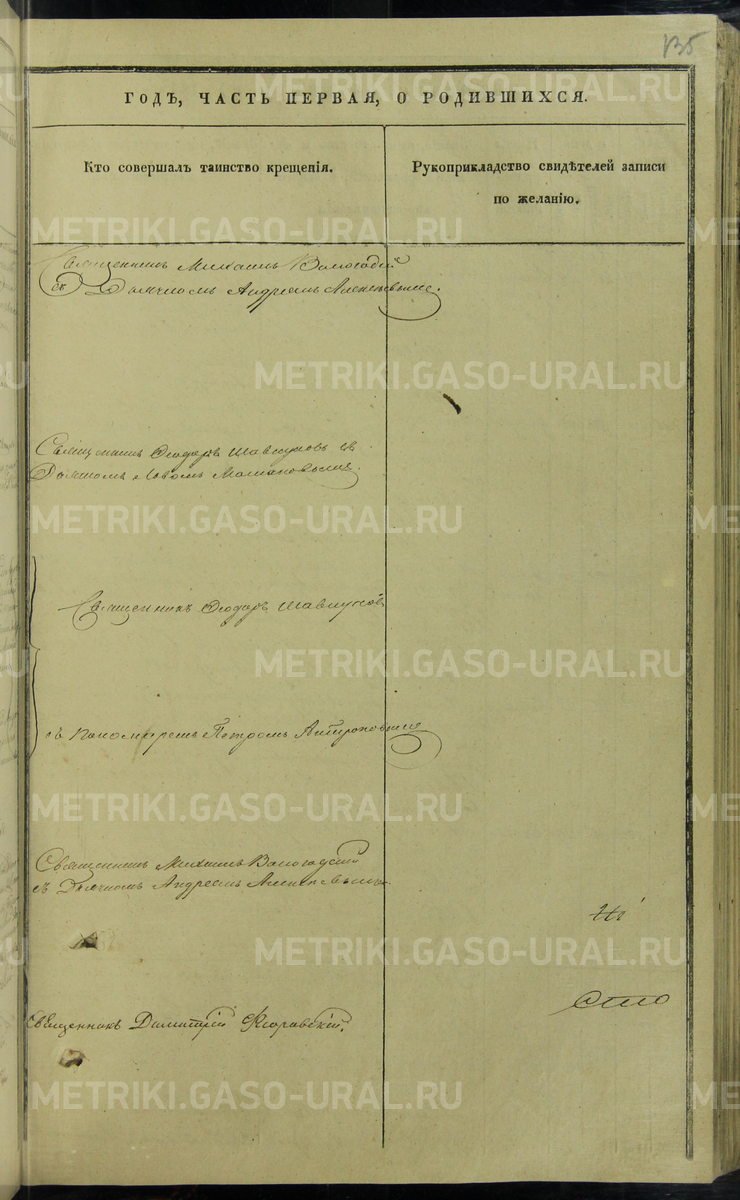 135
ГОДЪ, ЧАСТЬ ПЕРВАЯ, О РОДИВШИХСЯ.
Кто совершалъ таинство крещенія.
Рукоприкладство свидѣтелей записи
по желанію.
Священникъ Михаилъ Вологодскій
съ Дьячкомъ Андреемъ
Священникъ Ѳеодоръ Шавкуновъ съ
Дьячкомъ
Священникъ Ѳеодоръ Шавкуновъ
съ Пономаремъ Петромъ
Священникъ Михаилъ Вологодскій
съ Дьячкомъ Андреемъ
Священникъ Димитрій
METRIKI.GASO-URAL.RU